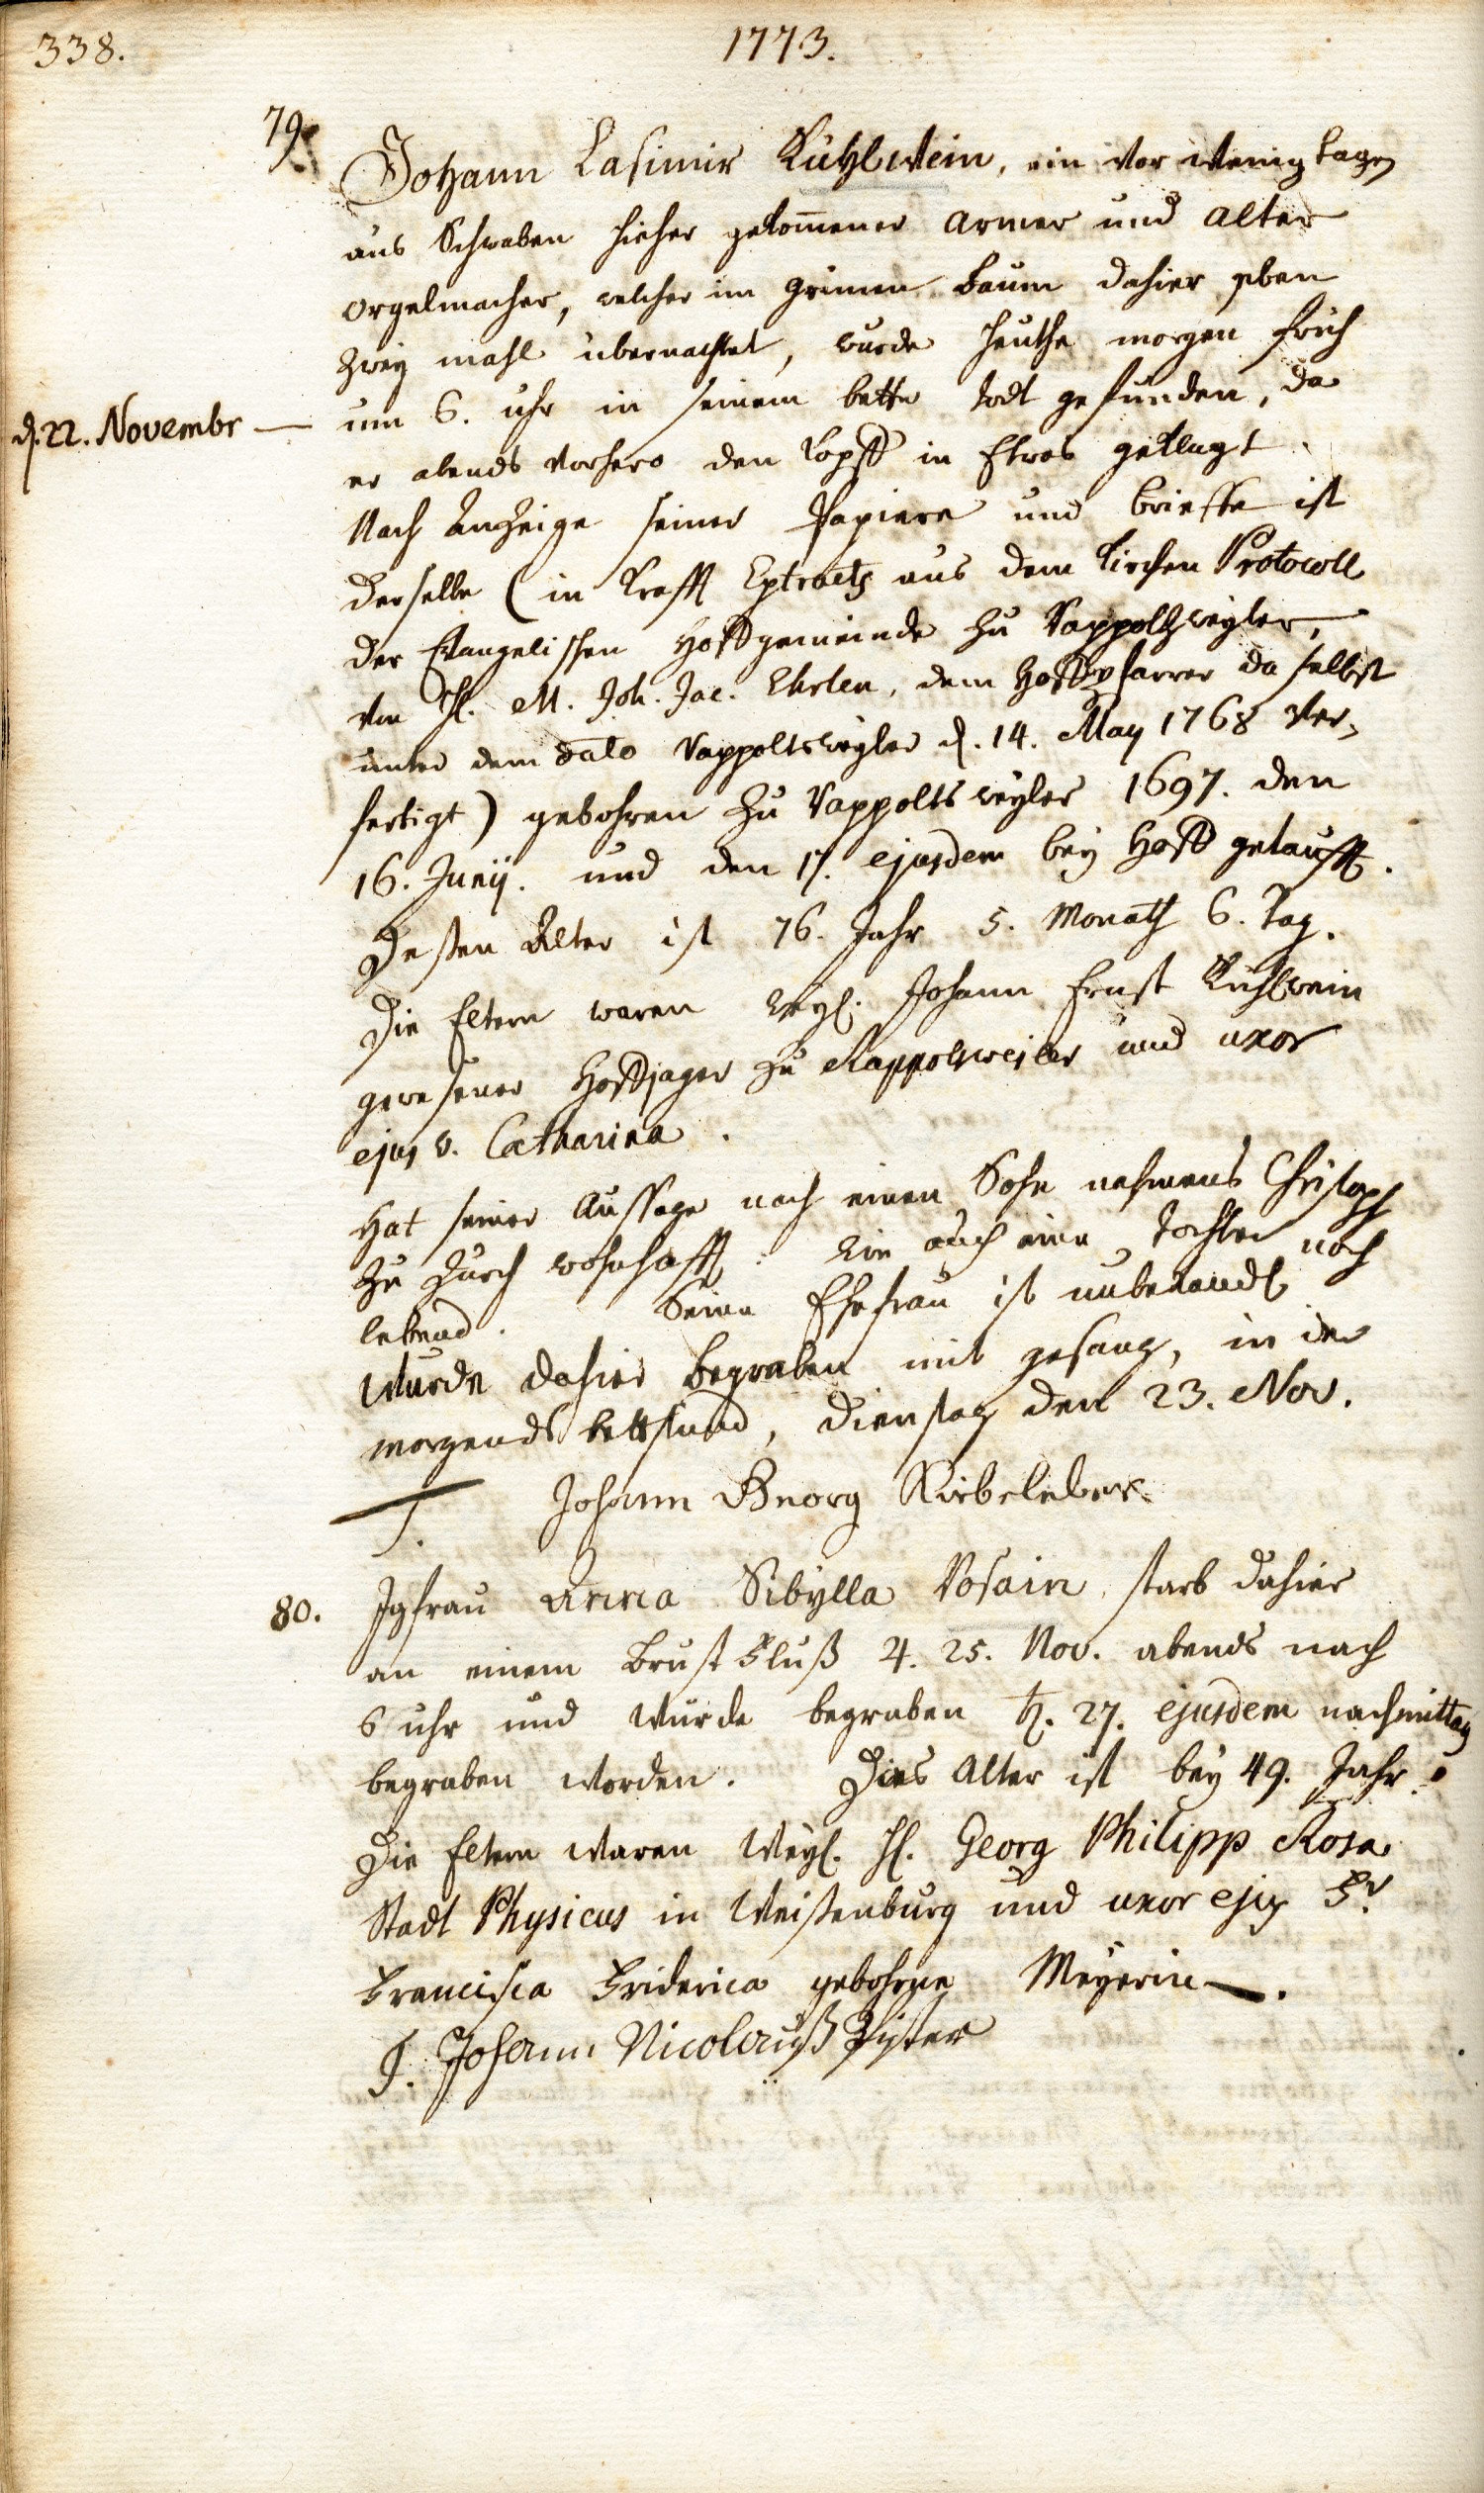 338.
1773.
79.
Johann Casimir Kühlwein, ein vor wenig tagen
aus Schwaben hieher gekom̄ener armer und alter
orgelmacher, welcher im grünen baum dahier eben
zwey mahl übernachtet, wurde heuthe morgen früh
d. 22. Novembr —
um 6. uhr in seinem bette todt gefunden, da
er abends vorhero den Kopff in Etwas geklagt.
Nach Anzeige seiner Papiere und brieffe ist
derselbe (in Krafft Extracts aus dem Kirchen Protocoll
der Evangelischen Hoffgemeinde zu Rappoltzweyler,
von H. M. Joh. Jac. Ehrlen, dem Hoffpfarrer daselbst
unter dem dato Rappoltsweyler d. 14. May 1768 ver-
fertigt) gebohren zu Rappoltsweyler 1697. den
16. Junij. und den 17. ejusdem bey Hoff getaufft.
Deßen Alter ist 76. Jahr 5. Monath 6. Tag.
Die Eltern waren weyl. Johann Ernst Kühlwein
gewesener Hoffjager zu Rappolsweiler und uxor
ejus v. Catharina.
Hat seiner Aussage nach einen Sohn nahmens Christoph
zu wohnhafft. Wie auch eine Tochter noch
lebend. Seine Ehefrau ist unbekandt
Wurde dahier begraben mit gesang, in der
morgends bettstund, dienstag den 23. Nov.
T. Johann Georg Kirbeleber
80.
Jgfrau Anna Sibylla Rosain, starb dahier
an einem Brust Fluß 4. 25. Nov. abends nach
6 uhr und wurde begraben ♄. 27. ejusdem nachmittag
begraben worden. Dies Alter ist bey 49. Jahr.
Die Eltern waren Weyl. H. Georg Philipp Rosa
Stadt Physicus in Weißenburg und uxor ejus Fr.
Francisca Friderica gebohrne Meyerin —.
T. Johann Nicolauß Pister